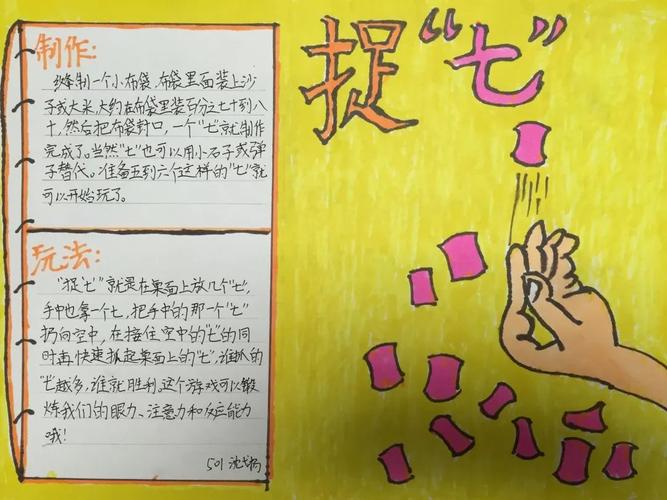 捉“七”
制作:
缝制一个小布袋,布袋里面装上沙
子或大米,大约在布袋里装百分之七十到八
十,然后把布袋封口,一个“七”就制作
完成了。当然“七”也可以用小石子或弹
子替代。准备五到六个这样的“七”就
可以开始玩了。
玩法:
“捉七”就是在桌面上放几个“七”,
手中也拿一个七,把手中的那一个“七”
扔向空中,在接住空中的“七”的同
时再快速抓起桌面上的“七”,谁抓的
“七”越多,谁就胜利。这个游戏可以锻
炼我们的眼力、注意力和反应能力
哦!
501 沈